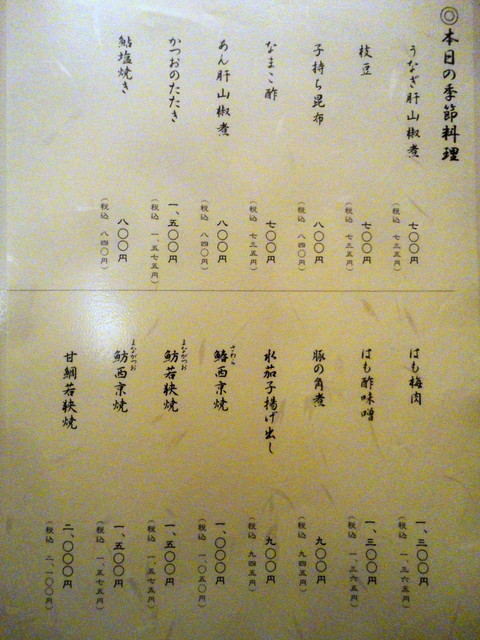 ◎本日の季節料理
うなぎ肝山椒煮
七〇〇円
(税込 七三五円)
枝豆
七〇〇円
(税込 七三五円)
子持ち昆布
八〇〇円
(税込 八四〇円)
なまこ酢
七〇〇円
(税込 七三五円)
あん肝山椒煮
八〇〇円
(税込 八四〇円)
かつおのたたき
一、五〇〇円
(税込 一、五七五円)
鮎塩焼き
八〇〇円
(税込 八四〇円)
はも梅肉
一、三〇〇円
(税込 一、三六五円)
はも酢味噌
一、三〇〇円
(税込 一、三六五円)
豚の角煮
九〇〇円
(税込 九四五円)
水茄子揚げ出し
九〇〇円
(税込 九四五円)
さわら
鰆西京焼
一、〇〇〇円
(税込 一、〇五〇円)
まながつお
魴若狭焼
一、五〇〇円
(税込 一、五七五円)
まながつお
魴西京焼
一、五〇〇円
(税込 一、五七五円)
甘鯛若狭焼
二、〇〇〇円
(税込 二、一〇〇円)